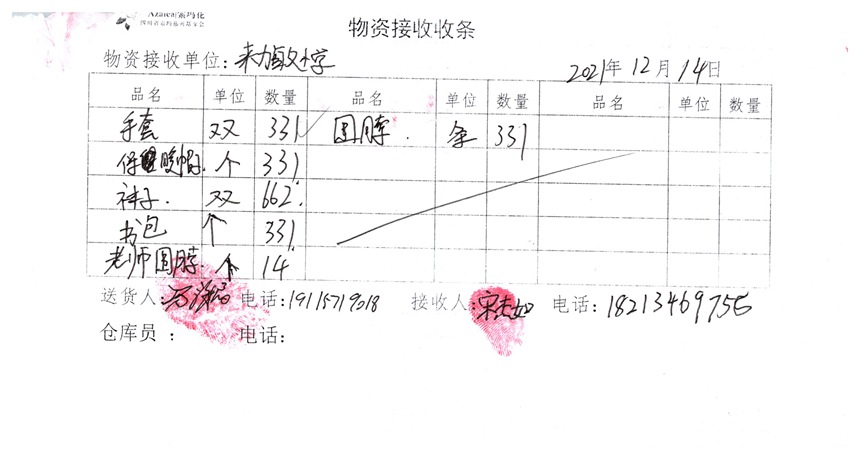 Azalea 索玛花
四川省索玛慈善基金会
物资接收收条
物资接收单位：来力敏小学 2021年12月14日
品名 单位 数量 品名 单位 数量 品名 单位 数量
手套 双 331 围脖 条 331
保暖帽子 个 331
袜子 双 662
书包 个 331
老师围脖 个 14
送货人： 电话：19115719018 接收人： 电话：18213469756
仓库员 ： 电话：